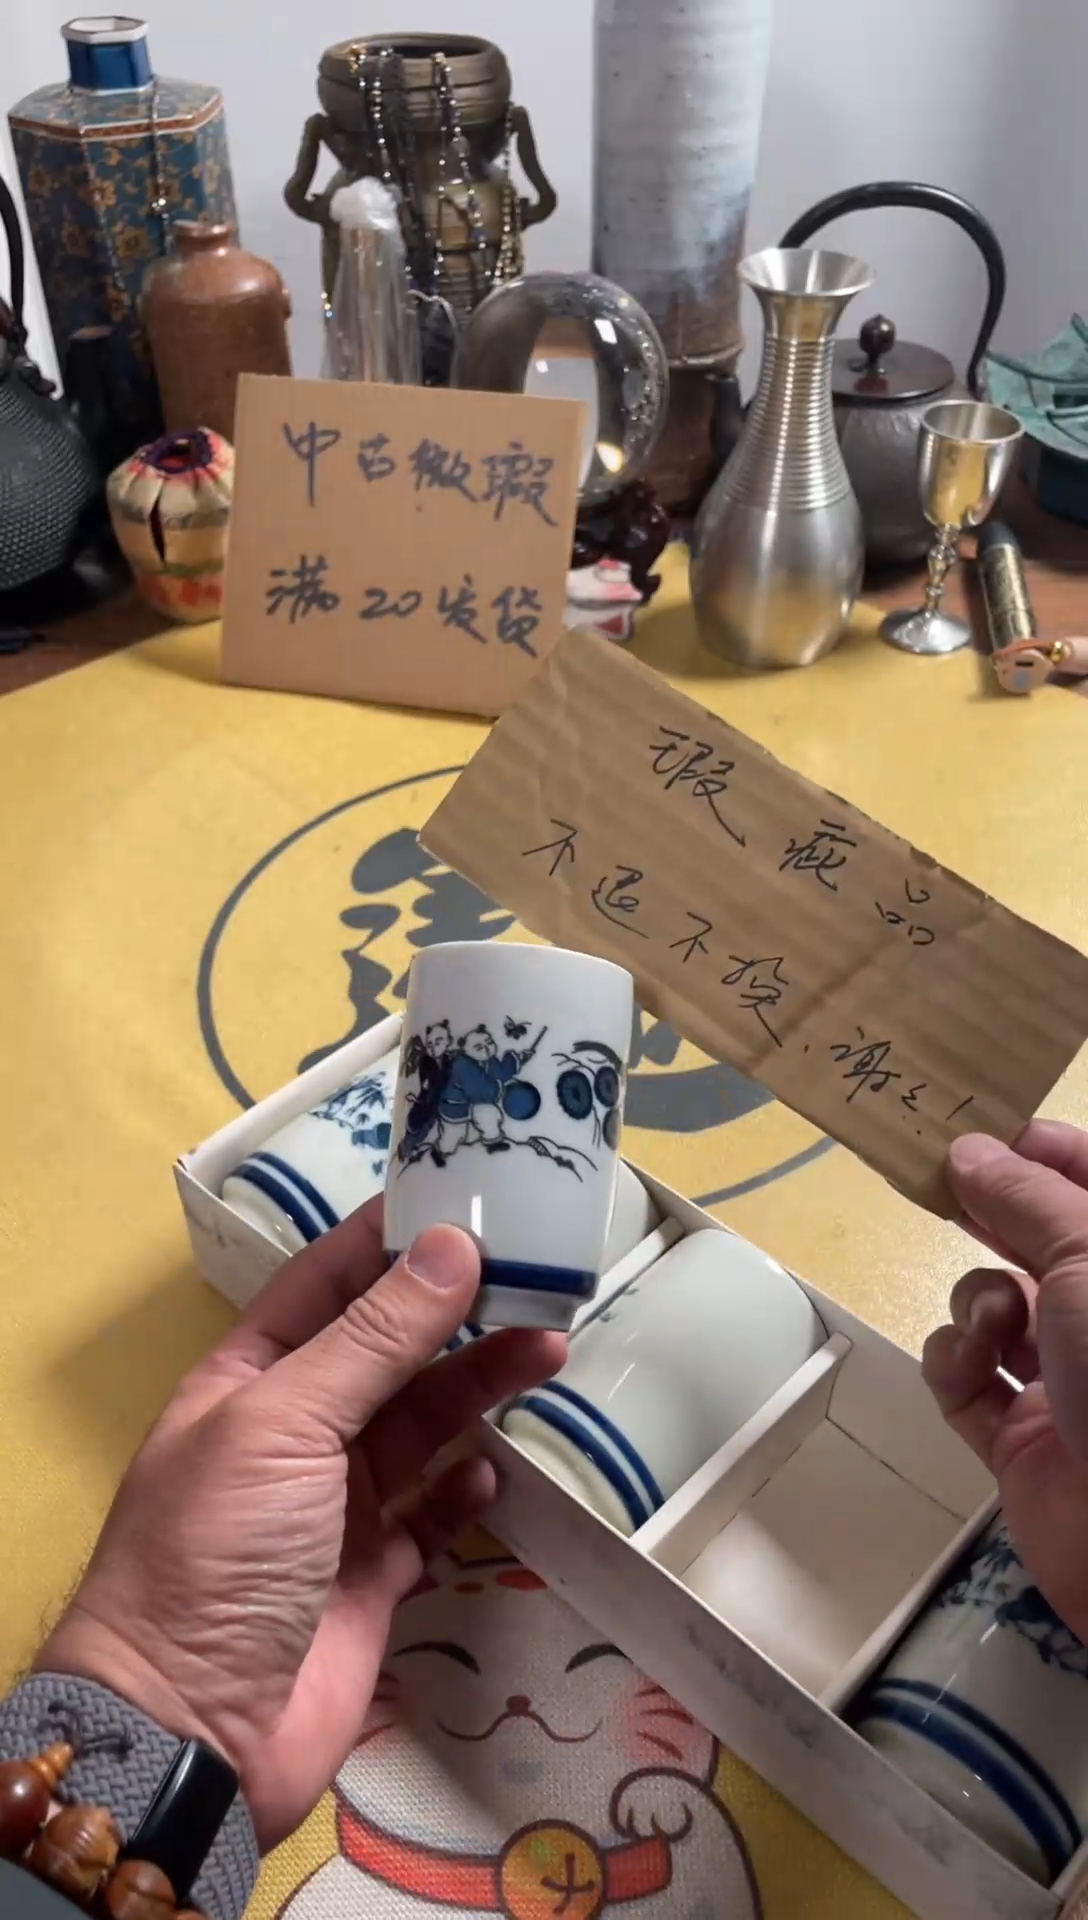 中古微瑕
满20发货
瑕疵品
不退不换，谢谢！